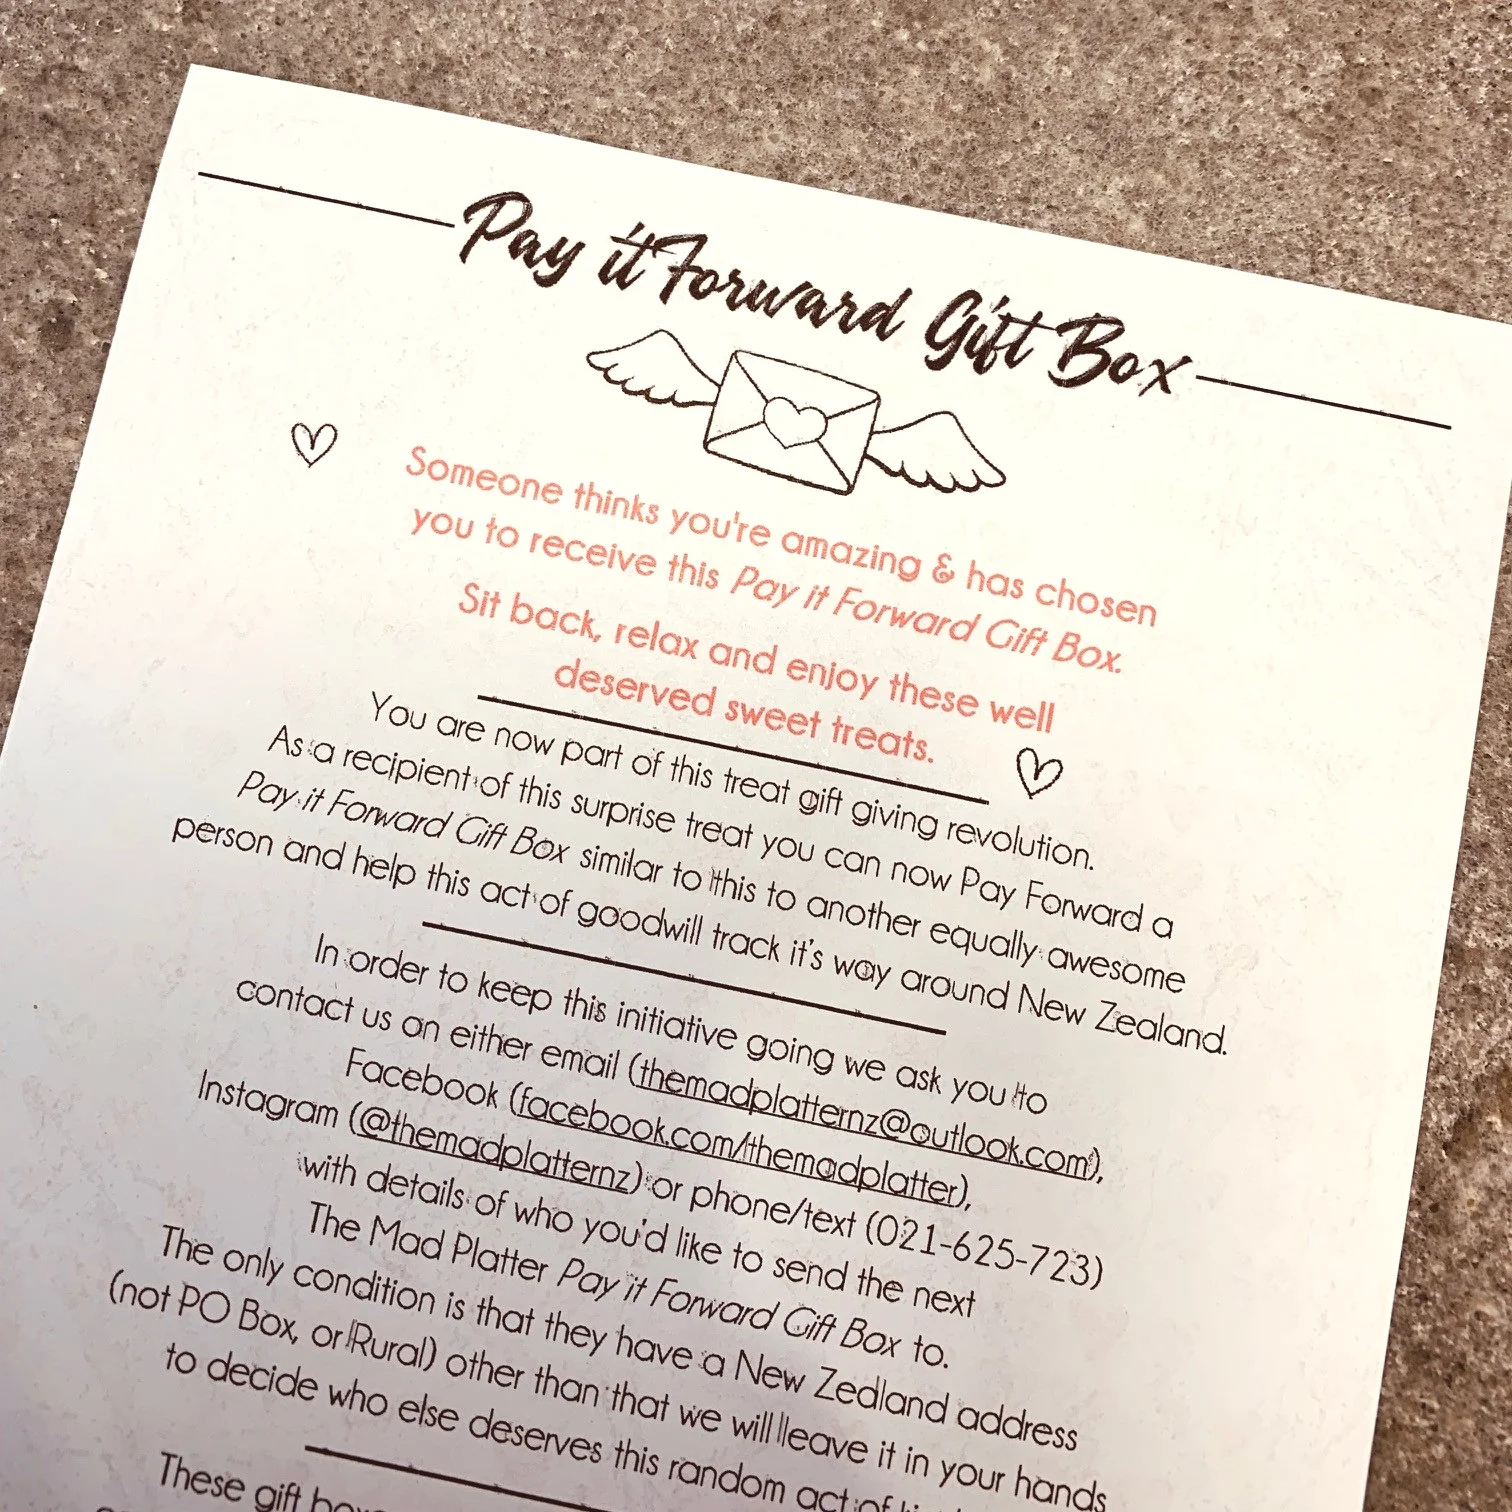 Pay it Forward Gift Box
Someone thinks you're amazing & has chosen
you to receive this Pay it Forward Gift Box.
Sit back, relax and enjoy these well
deserved sweet treats.
You are now part of this treat gift giving revolution.
As a recipient of this surprise treat you can now Pay Forward a
Pay it Forward Gift Box similar to this to another equally awesome
person and help this act of goodwill track it's way around New Zealand.
In order to keep this initiative going we ask you to
contact us on either email (themadplatternz@outlook.com),
Facebook (facebook.com/themadplatter),
Instagram (@themadplatternz) or phone/text (021-625-723)
with details of who you'd like to send the next
The Mad Platter Pay it Forward Gift Box to.
The only condition is that they have a New Zealand address
(not PO Box, or Rural) other than that we will leave it in your hands
to decide who else deserves this random act of
These gift